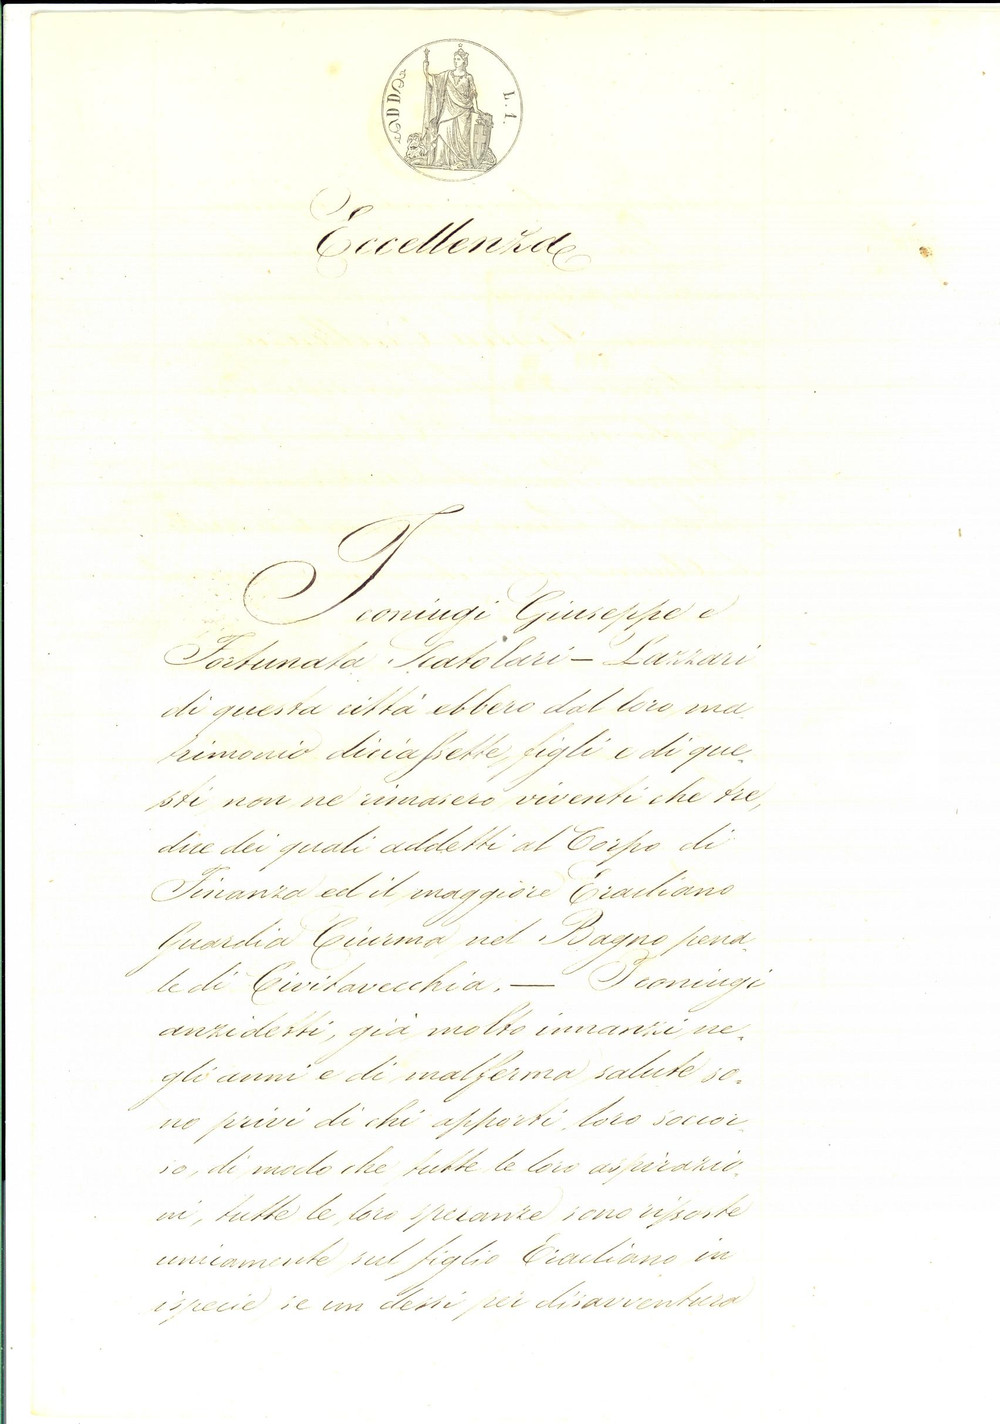 L. 1.
Eccellenza
I coniugi Giuseppe e
Fortunata Scatolari – Lazzari
di questa città ebbero dal loro ma
trimonio diciassette figli e di que-
sti non ne rimasero viventi che tre,
due dei quali addetti al Corpo di
Finanza ed il maggiore Eracliano
Guardia Ciurma nel Bagno pena-
le di Civitavecchia. — I coniugi
anzidetti, già molto innanzi ne-
gli anni e di malferma salute so-
no privi di chi apporti loro soccor-
so, di modo che tutte le loro aspirazio-
ni, tutte le loro speranze sono risposte
unicamente sul figlio Eracliano in
ispecie se un dessi per disavventura